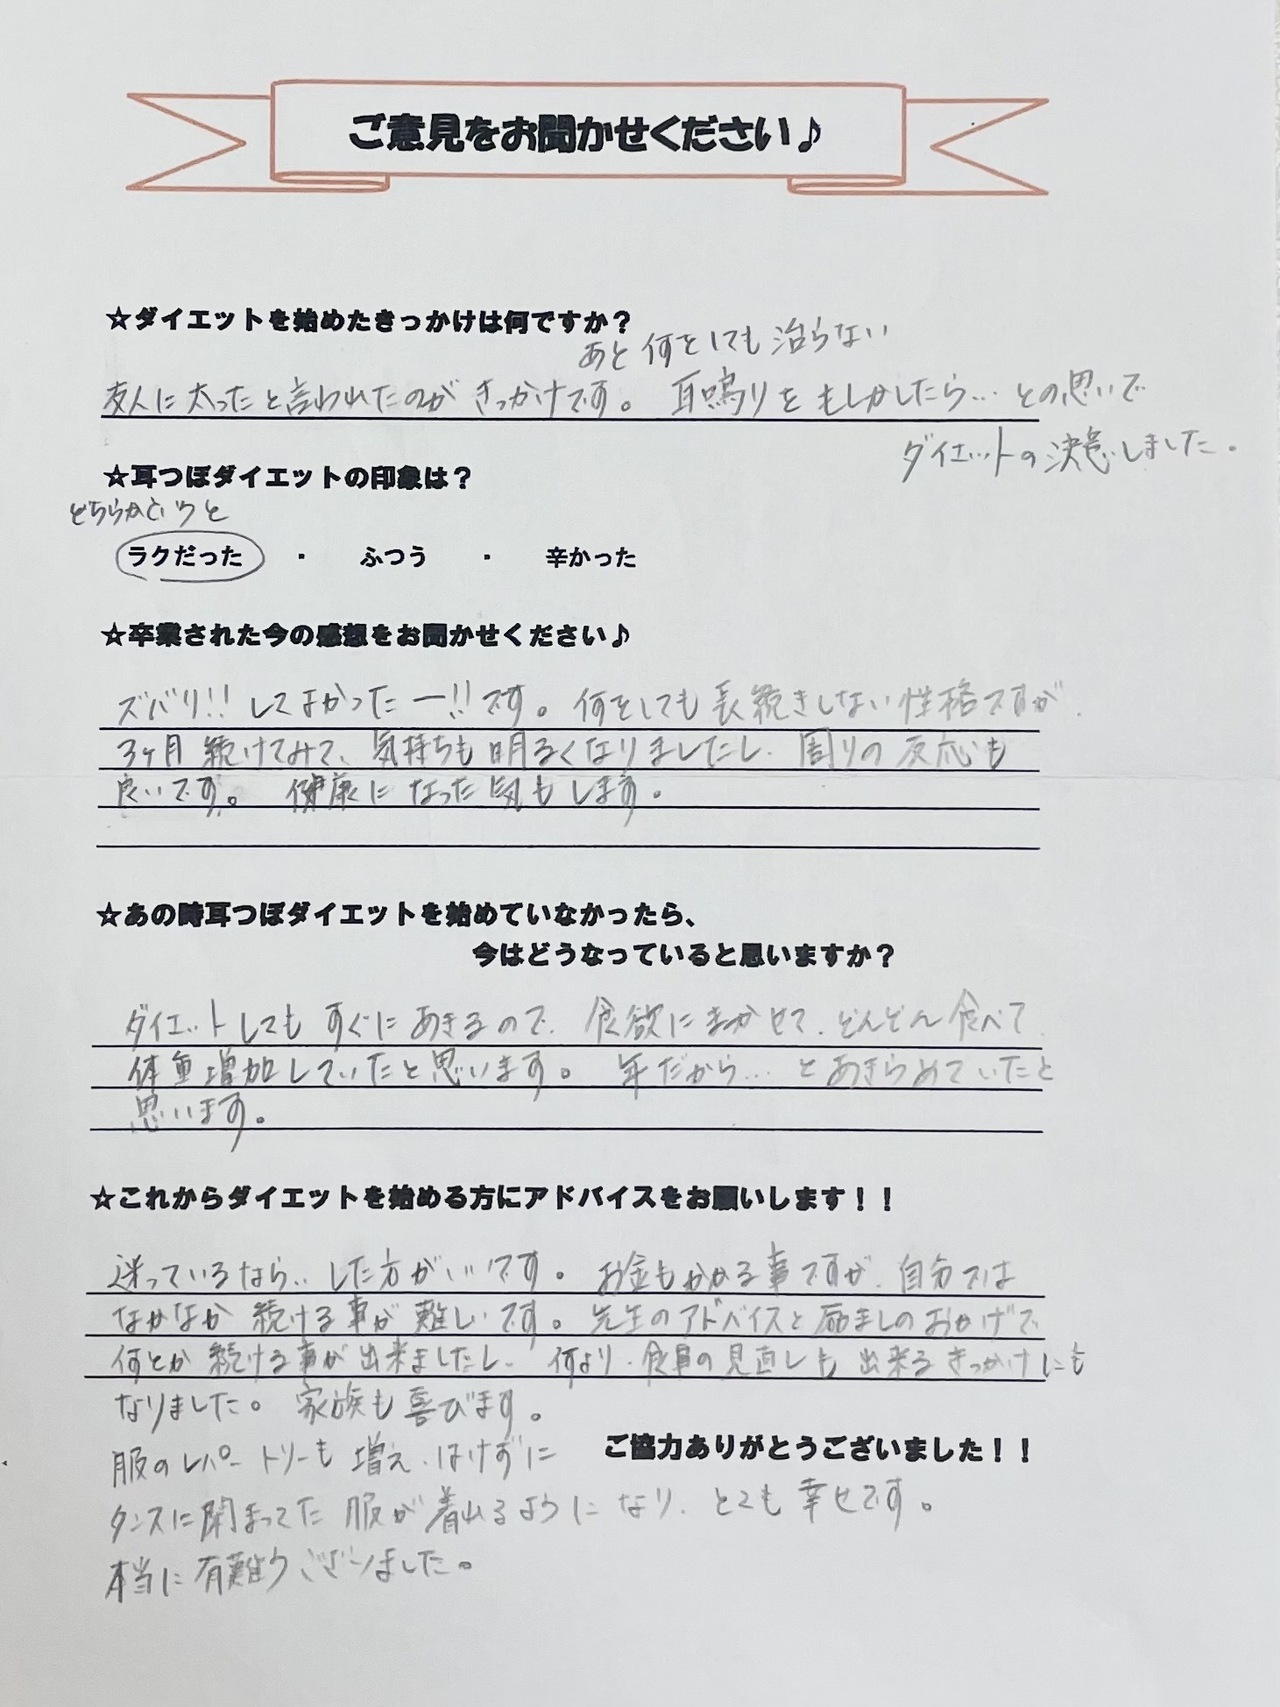 ご意見をお聞かせください♪
☆ダイエットを始めたきっかけは何ですか？
あと何をしても治らない
友人に太ったと言われたのがきっかけです。耳鳴りをもしかしたら…との思いで
ダイエットの決意しました。
☆耳つぼダイエットの印象は？
どちらかというと
ラクだった ・ ふつう ・ 辛かった
☆卒業された今の感想をお聞かせください♪
ズバリ!!してよかったー!!です。何をしても長続きしない性格ですが、
3ヶ月続けてみて、気持ちも明るくなりましたし、周りの反応も
良いです。健康になった気もします。
☆あの時耳つぼダイエットを始めていなかったら、
今はどうなっていると思いますか？
ダイエットしてもすぐにあきるので、食欲にまかせて、どんどん食べて、
体重増加していたと思います。年だから…とあきらめていたと
思います。
☆これからダイエットを始める方にアドバイスをお願いします！！
迷っているなら…した方がいいです。お金もかかる事ですが、自分では
なかなか続ける事が難しいです。先生のアドバイスと励ましのおかげで
何とか続ける事が出来ましたし、何より、食事の見直しも出来るきっかけにも
なりました。家族も喜びます。
服のレパートリーも増え、はけずに
ご協力ありがとうございました！！
タンスに閉まってた服が着れるようになり、とても幸せです。
本当に有難うございました。